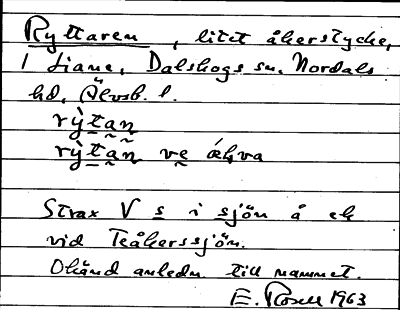 Ryttaren, litet åkerstycke,
i Liane, Dalskogs sn. Nordals
hd, Älvsb. l.
rỳtan
rỳtan ve ǽkva
Strax V s i sjön å ek
vid Teåkerssjön.
Okänd anledn. till namnet.
E. Rosell 1963